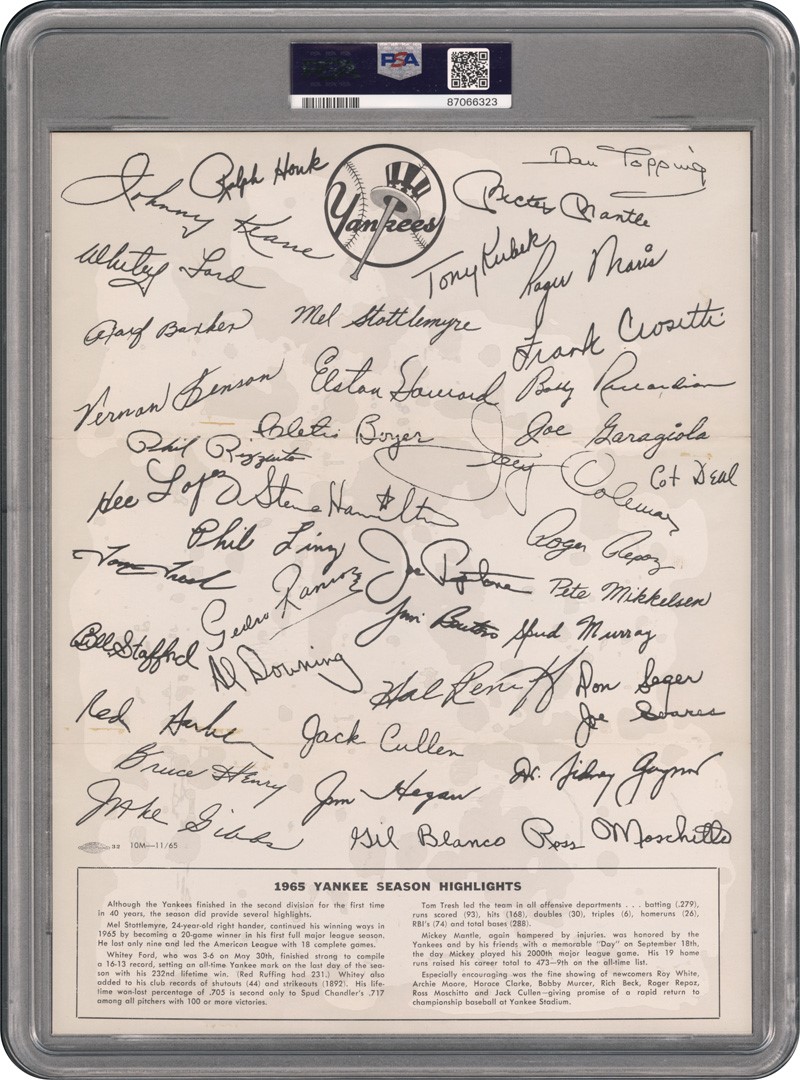 PSA
87066323
Dan Topping
Ralph Houk
Johnny Keane
Yankees
Mickey Mantle
Whitey Ford
Tony Kubek
Roger Maris
Mel Stottlemyre
Frank Crosetti
Vernon Benson
Elston Howard
Bobby Richardson
Phil Rizzuto
Cletis Boyer
Joe Garagiola
Jerry Coleman
Cot Deal
Hec Lopez
Steve Hamilton
Phil Linz
Roger Repoz
Tom Tresh
Pedro Ramos
Joe Pepitone
Pete Mikkelsen
Jim Bouton
Spud Murray
Bill Stafford
Al Downing
Hal Reniff
Don Seger
Joe Soares
Jack Cullen
Bruce Henry
Jim Hegan
Dr. Sidney Gaynor
Jake Gibbs
Gil Blanco
Ross Moschitto
32 10M—11/65
1965 YANKEE SEASON HIGHLIGHTS
Although the Yankees finished in the second division for the first time
in 40 years, the season did provide several highlights.
Mel Stottlemyre, 24-year-old right hander, continued his winning ways in
1965 by becoming a 20-game winner in his first full major league season.
He lost only nine and led the American League with 18 complete games.
Whitey Ford, who was 3-6 on May 30th, finished strong to compile
a 16-13 record, setting an all-time Yankee mark on the last day of the sea-
son with his 232nd lifetime win. (Red Ruffing had 231.) Whitey also
added to his club records of shutouts (44) and strikeouts (1892). His life-
time won-lost percentage of .705 is second only to Spud Chandler's .717
among all pitchers with 100 or more victories.
Tom Tresh led the team in all offensive departments . . . batting (.279),
runs scored (93), hits (168), doubles (30), triples (6), homeruns (26),
RBI's (74) and total bases (288).
Mickey Mantle, again hampered by injuries. was honored by the
Yankees and by his friends with a memorable "Day" on September 18th,
the day Mickey played his 2000th major league game. His 19 home
runs raised his career total to 473—9th on the all-time list.
Especially encouraging was the fine showing of newcomers Roy White,
Archie Moore, Horace Clarke, Bobby Murcer, Rich Beck, Roger Repoz,
Ross Moschitto and Jack Cullen—giving promise of a rapid return to
championship baseball at Yankee Stadium.